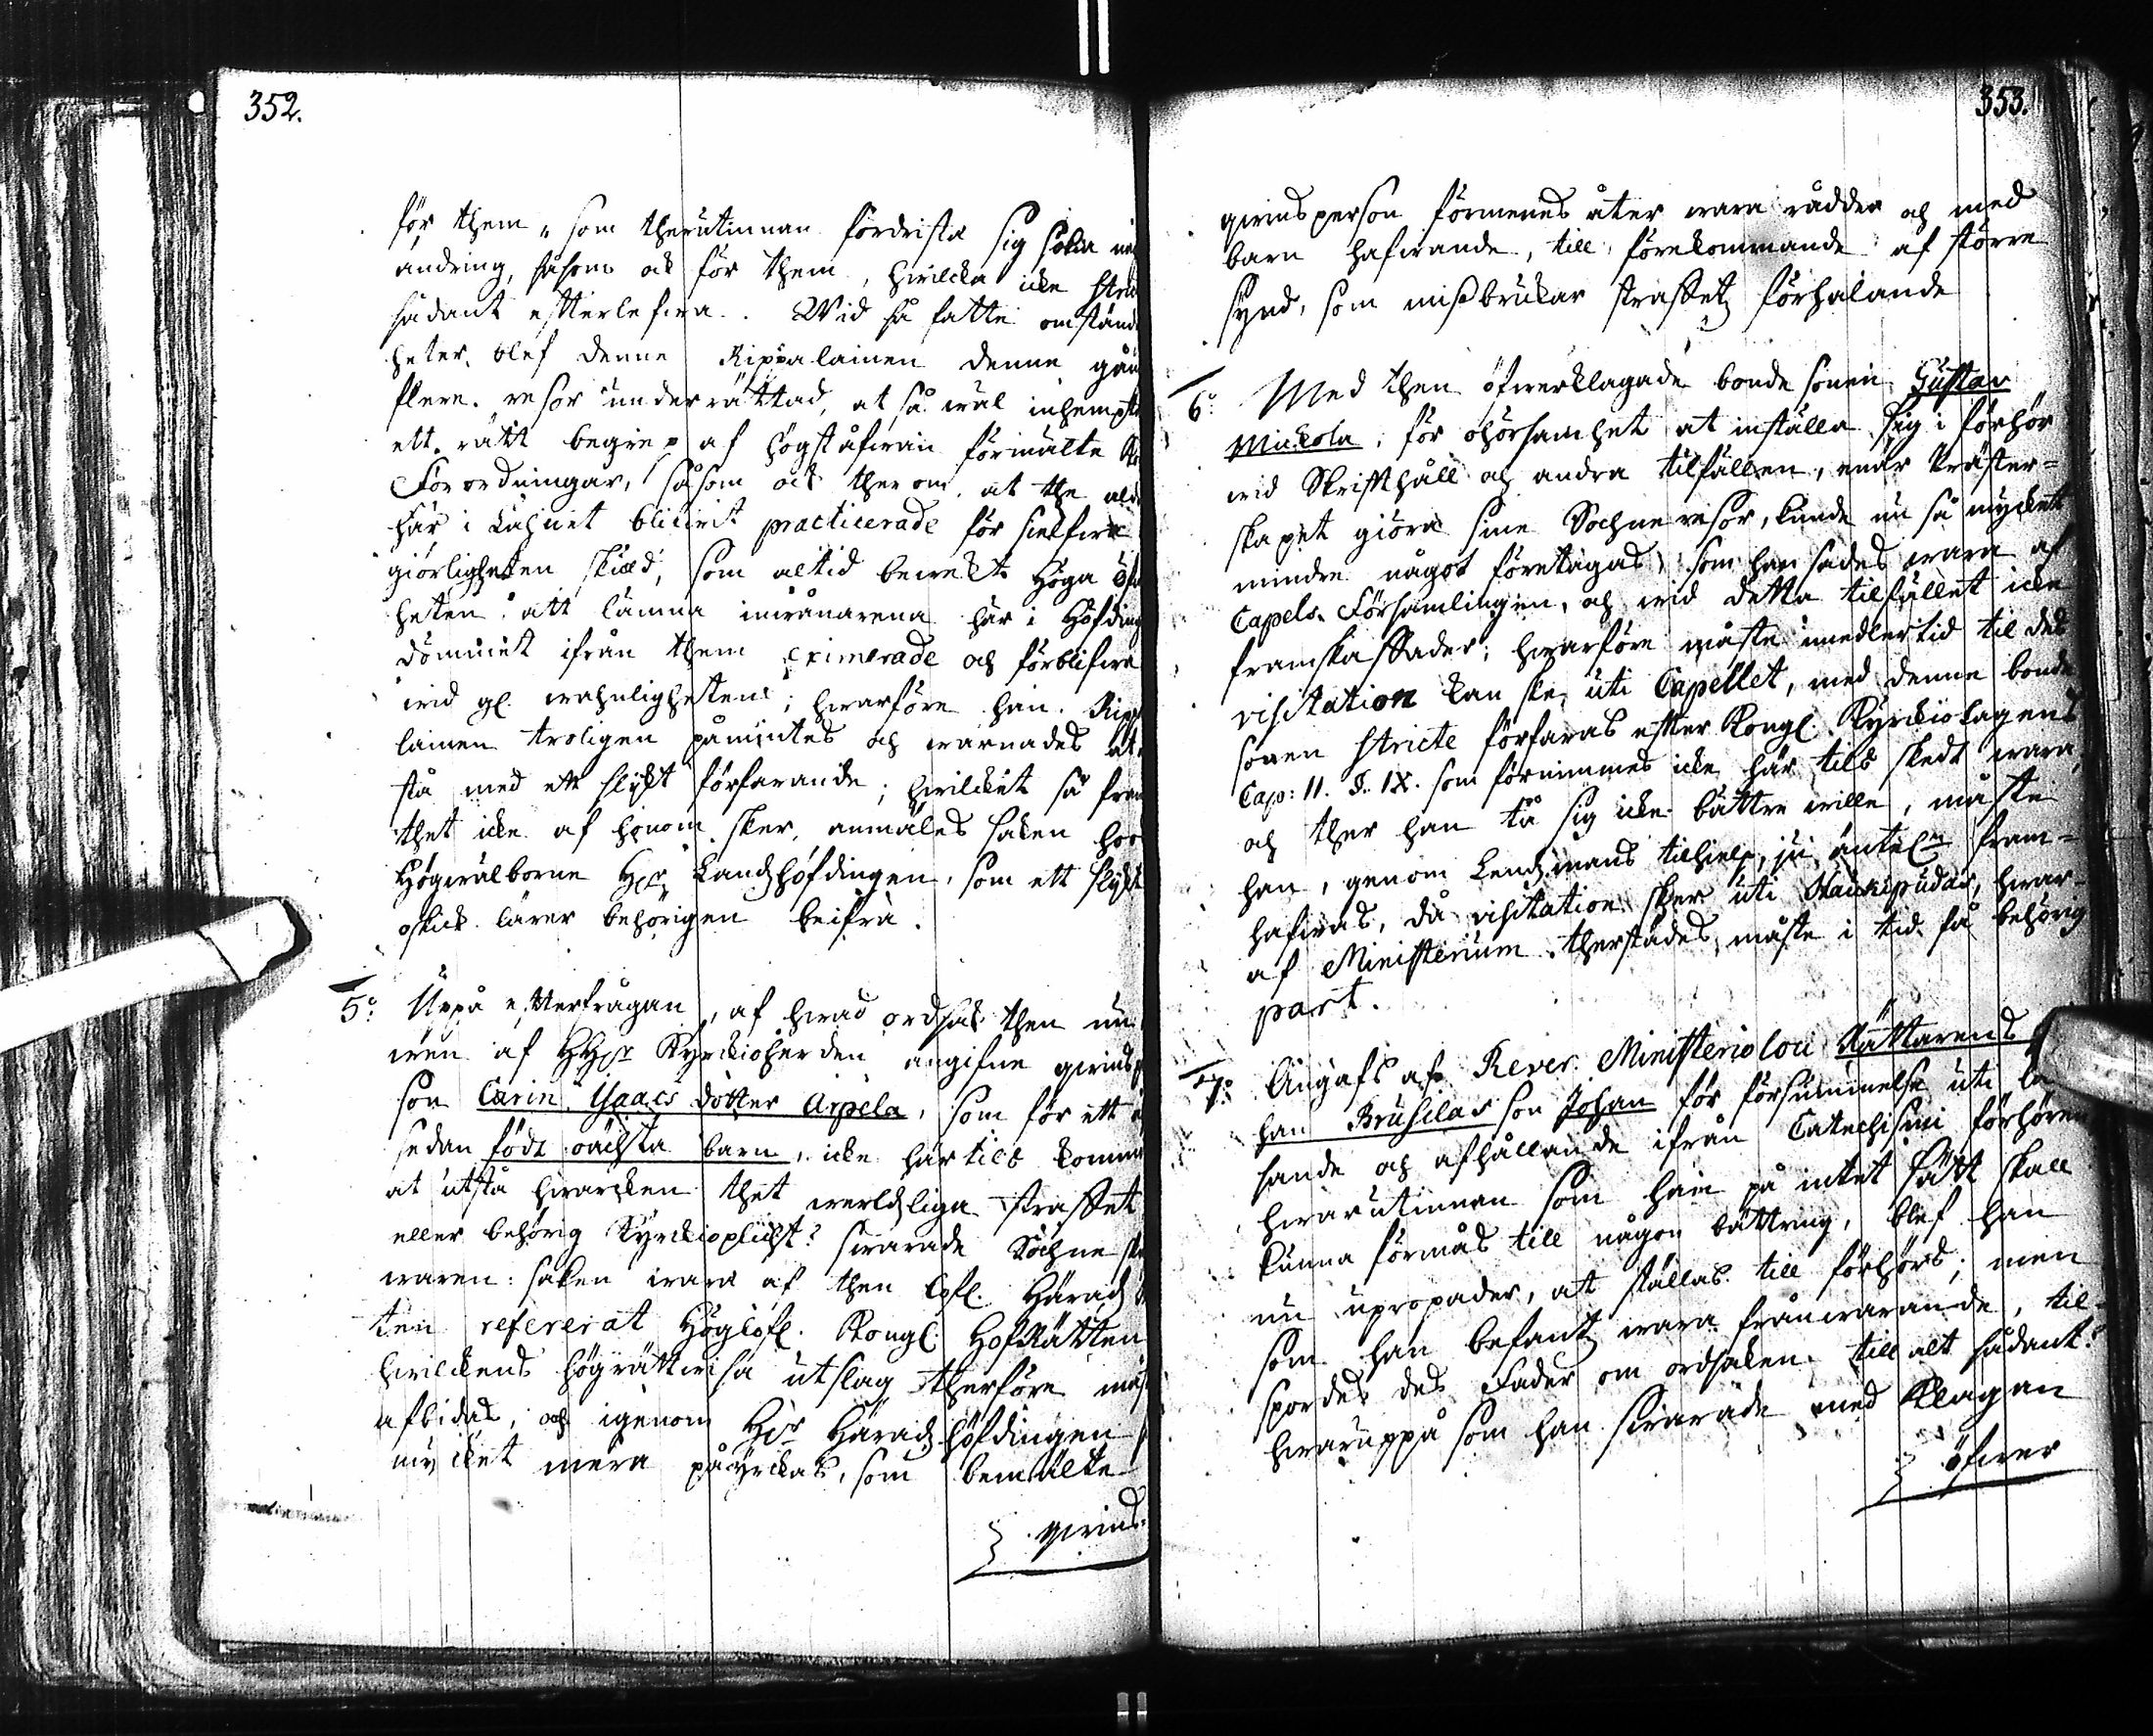 352.
för them, som therutinnan fördrista sig söka
ändring, såsom ock för them, hvilcka icke
sådant efterlefwa. Wid så fatte omständ
heter, blef denne Rippalainen denne gång
flere resor underrättad, at så wäl inhempta
ett rätt begrep af högst åfwan förmälte
Förordningar, såsom ock ther om, at the
här i Lähnet blifwit practicerade för sielfwa
giörligheten skuld, som altid bewekt Höga Öfwer
heten att lämna inwånarena här i Höfdinge
dömmet ifrån them eximerade och förblifwa
wid gl. wahnligheten; hwarföre han Rippa
lainen troligen påmintes och warnades at
stå med ett slykt förfarande; hwilcket så fram
thet icke af honom sker, anmäles saken hos
Högwälborne Hr Landzhöfdingen, som ett slykt
oskick lärer behörigen beifra.
5:o Uppå efterfrågan, af hwad ordsak then
wen af HHr Kyrckioherden angifne qwinds
son Carin Isaacs dotter Arpela, som för ett
sedan födt oächta barn, icke här tils kommit
at utstå hwarcken thet werldzliga straffet
eller behörig Kyrckioplicht? swarade Sochne
waren: saken wara af then Lofl. Härads
ten refererat Höglofl. Kongl. HofRätten
hwilckens högrättwisa utslag therföre måste
afbidas, och igenom Hr Häradz höfdingen
mycket mera påyrckas, som bemälte
qwinds-
353.
qwindsperson förmenes åter wara rådder och med
barn hafwande, till förekommande af större
synd, som missbrukar straffetz förhalande
6:o Med then öfwerklagade bonde sonen Gustav
Mickola, för ohörsamhet at inställa sig i förhör
wid Skriffthåll och andra tilfällen, enär Präster-
skapet giöra sine Sochneresor, kunde nu så myckett
mindre något företagas, som han sades wara af
Capels Församlingen, och wid detta tilfället icke
framskaffades; hwarföre måste imedlertid til des
visitation kan ske uti Capellet, med denne bonde
sonen stricte förfaras efter Kongl. Kyrckiolagens
Cap: 11. §. IX. som förnimmes icke här tils skedt wara,
och ther han tå sig icke bättra wille, måste
han, genom Lendzmans tilhielp, ju äntel:n fram-
hafwas, då visitation sker uti Haukipudas, hwar-
af Ministerium therstädes måste i tid få behörig
part.
7:o Angafs af Rever. Ministerio loci Rättarens
han Brusilas son Johan för försummelse uti
sande och afhållande ifrån Catechismi förhören
hwarutinnan som han på intet sätt skall
kunna förmås till någon bättring, blef han
nu upropader, at ställas till förhörs; men
som han befants wara frånwarande, til-
spordes des Fader om ordsaken till alt sådant?
hwaruppå som han swarade med Klagan
öfwer